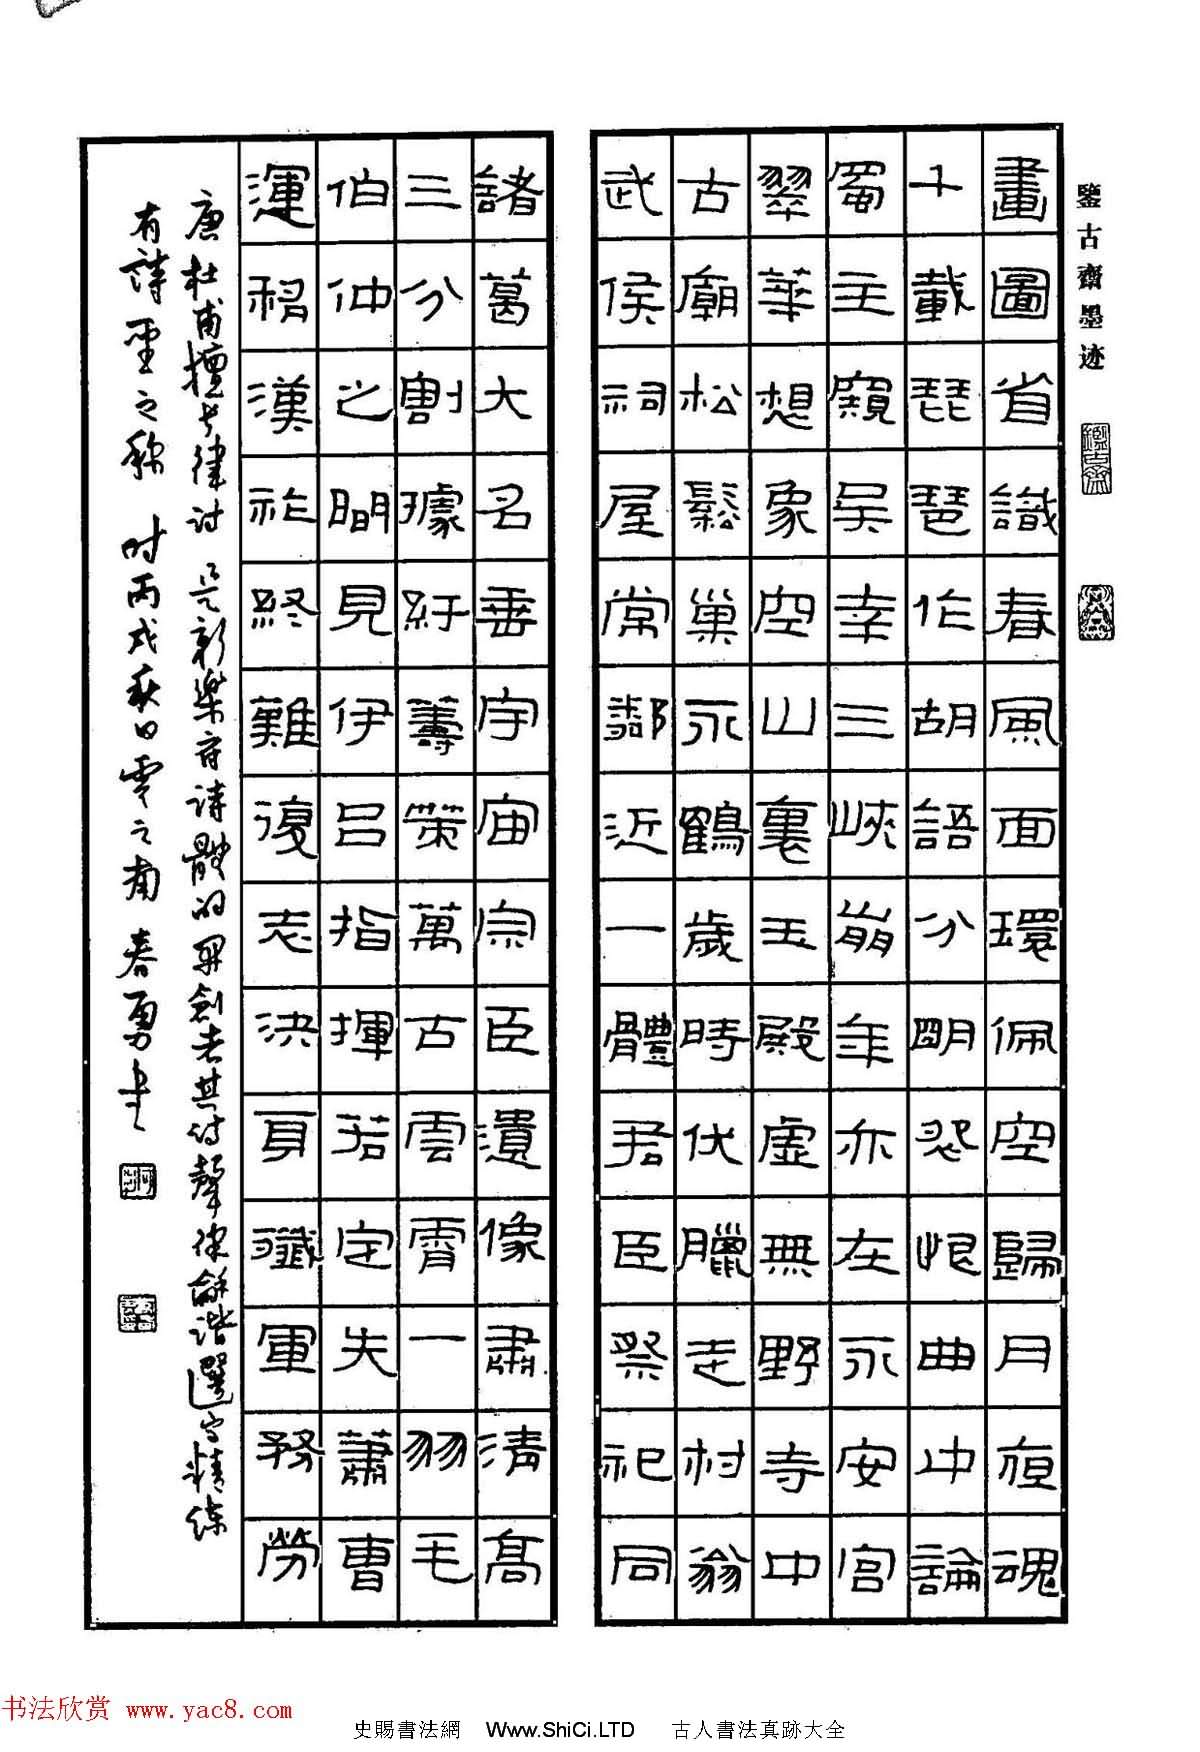 鑒古齋墨迹
畫圖省識春風面環佩空歸月夜魂
千載琵琶作胡語分明怨恨曲中論
蜀主窺吳幸三峽崩年亦在永安宮
翠華想象空山裏玉殿虛無野寺中
古廟松鬆巢永鶴歲時伏臘走村翁
武侯祠屋常鄰近一體君臣祭祀同
諸葛大名垂宇宙宗臣遺像肅清高
三分割據紆籌策萬古雲霄一羽毛
伯仲之間見伊呂指揮若定失蕭曹
運移漢祚終難復志決身殲軍務勞
唐杜甫擅長律詩 是新樂府詩體的開創者其詩聲律龢諧選字精練
有詩聖之稱 时丙戌秋日雪之南春勇書
书法欣赏 www.yac8.com
史賜書法網 Www.ShiCi.LTD 古人書法真跡大全